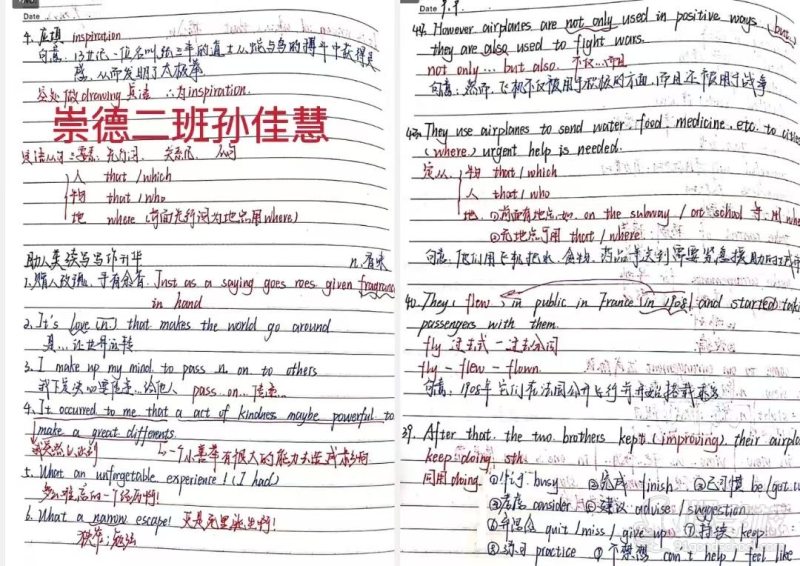 Date.
4. 应填 inspiration
句意: 13世纪一位名叫张三丰的道士从蛇与鸟的搏斗中获得灵
感, 从而发明了太极拳
崇德二班孙佳慧
人 that / which
物 that / who
地 where (前面先行词为地点用where)
助人类续写写作升华
1. 赠人玫瑰, 手有余香. Just as a saying goes roes given fragrance
in hand
2. It's love (n.) that makes the world go around
是...让世界运转
3. I make up my mind to pass n. on to others
我下定决心要传递...给他人 pass...on...传递...
4. It occurred to me that a act of kindnes maybe powerful to
make a great differents.
我突然意识到 一个小善举有很大的能力去造成影响
5. What an unforgetable experience! (I had)
多么难忘的一个经历啊!
6. What a narrow escape! 真是死里逃生啊!
Date.
44. However, airplanes are not only used in positive ways, but
they are also used to fight wars.
not only ... but also. 不仅...而且
句意: 然而, 飞机不仅被用于积极的方面, 而且还被用于战争
43. They use airplanes to send water, food, medicine, etc. to cities
(where) urgent help is needed.
定从. 物 that / which
人 that / who
地. ①前面有地点, 如. on the subway / art school 等: 用 wh
that / where
40. They flew in public in France in 1908, and started taki
passengers with them.
fly 过去式 — 过去分词
fly — flew — flown.
句意: 1908年它们在法国公开飞行并开始搭载乘客
39. After that, the two brothers kept (improving) their airpla
keep doing sth.
同用doing. ①忙于 busy ②完成 finish ③已习惯 be / got
④考虑 consider ⑤建议 advise / suggestion
quit / miss / give up ⑦持续 keep
⑧练习 practice ⑨不禁想 can't help / feel like